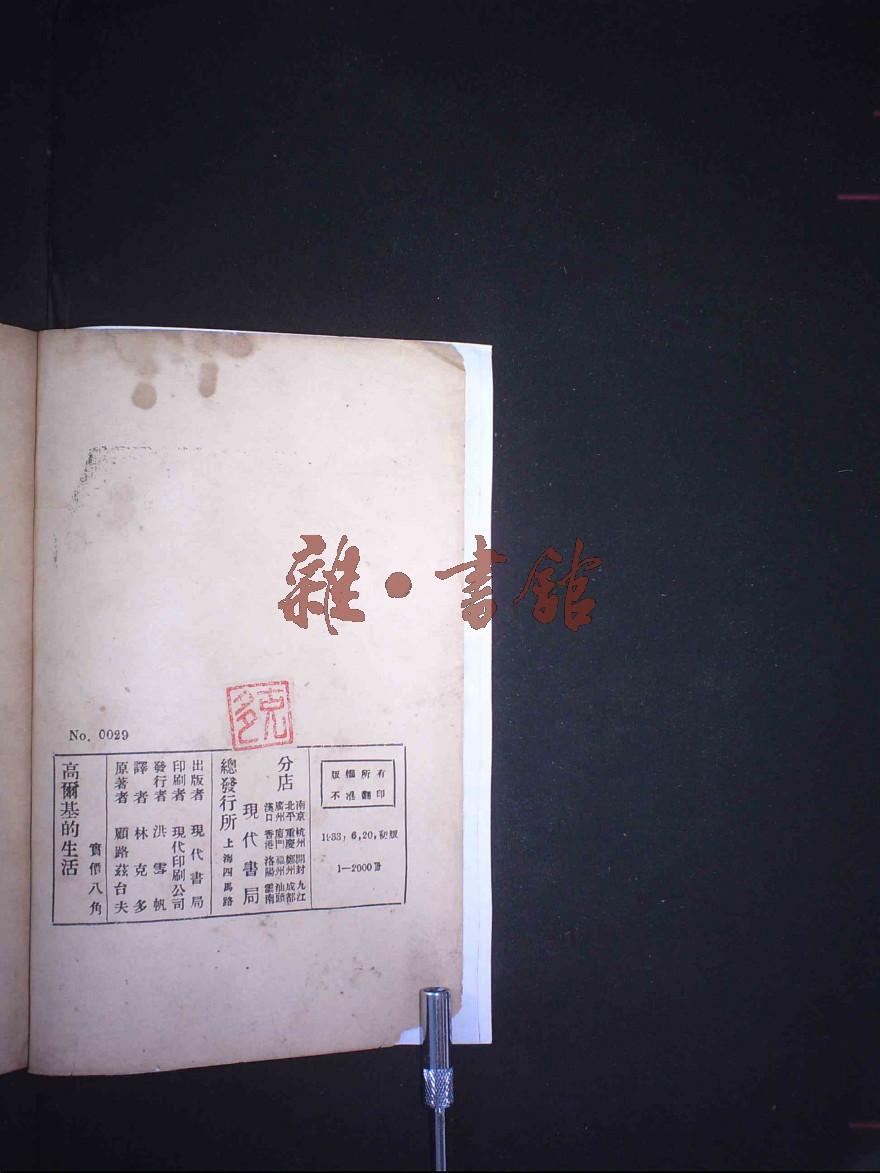 雜·書館
克多
No. 0029
版權所有
不准翻印
1933, 6, 20, 初版
1—2000冊
分店
南京 杭州 開封 九江
北平 重慶 鄭州 成都
廣州 廈門 福州 汕頭
漢口 香港 洛陽 雲南
現代書局
總發行所 上海四馬路
出版者 現代書局
印刷者 現代印刷公司
發行者 洪雪帆
譯者 林克多
原著者 顧路茲台夫
實價八角
高爾基的生活